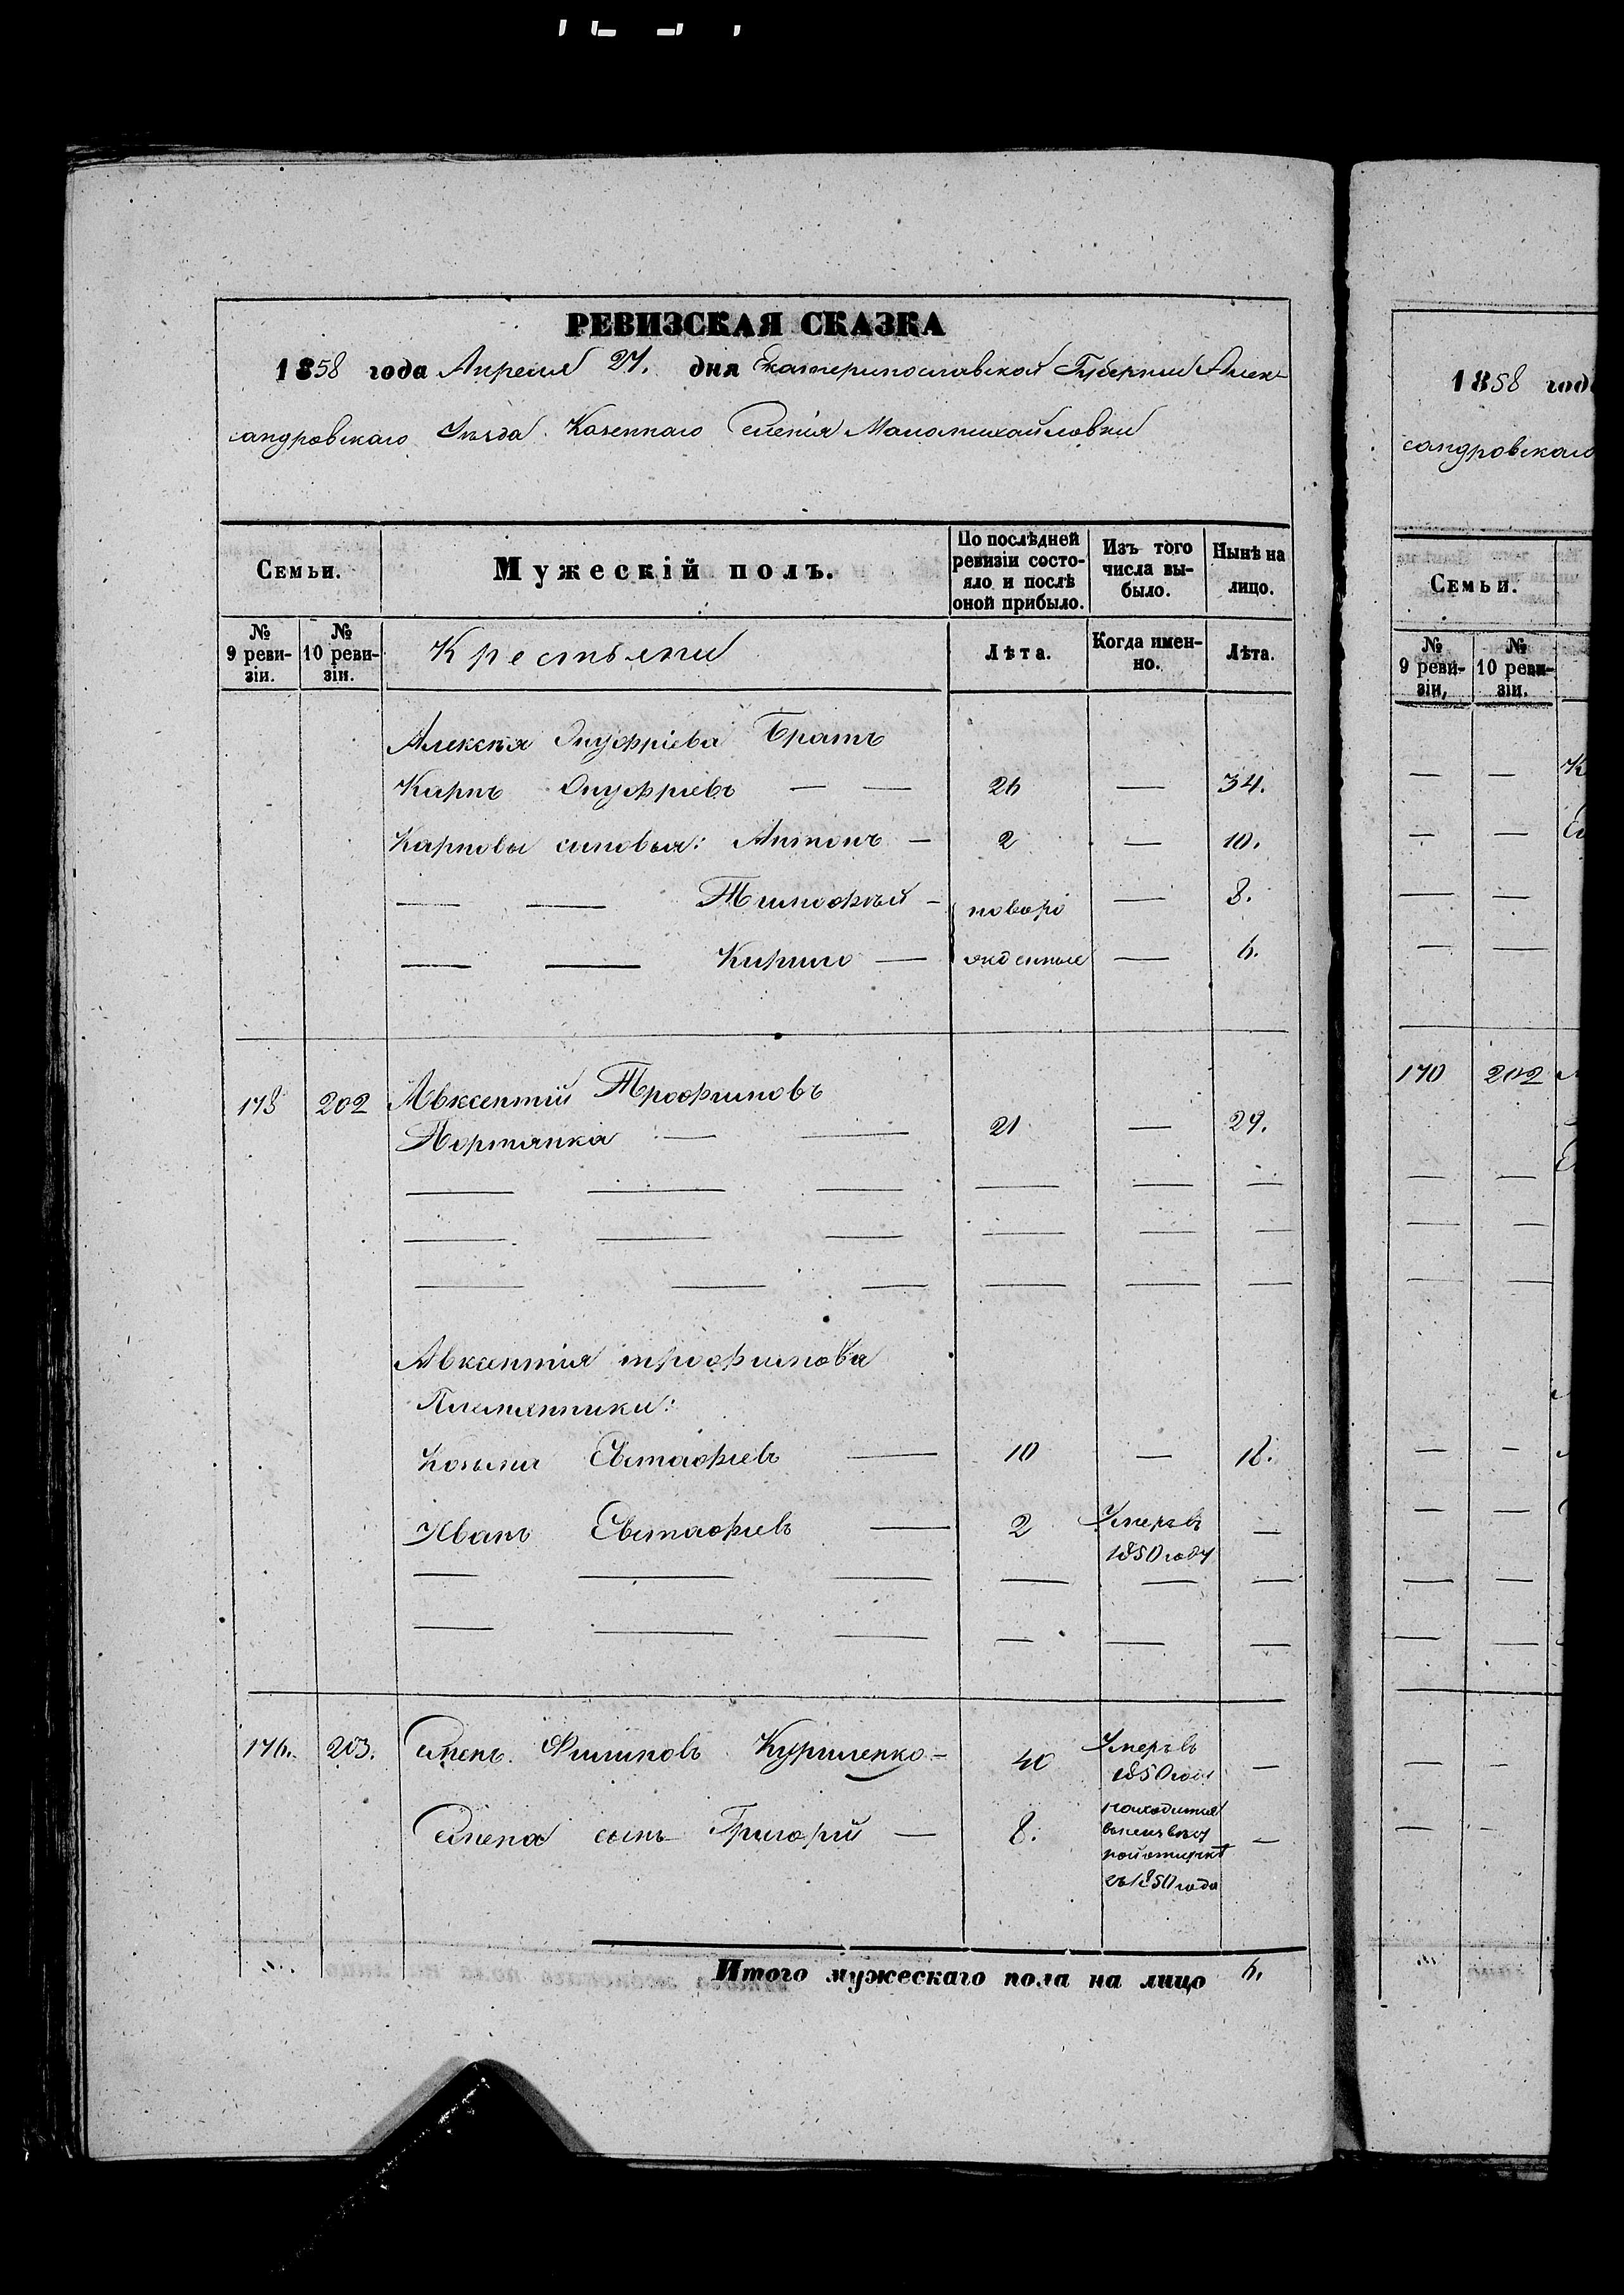 РЕВИЗСКАЯ СКАЗКА
1858 года Апреля 27. дня Екатеринославской Губернии Алек-
сандровскаго Уѣзда Казеннаго Селенія Маломихайловки
Семьи.
Мужескій полъ.
По послѣдней ревизіи состояло и послѣ оной прибыло.
Изъ того числа выбыло.
Нынѣ на лицо.
№ 9 ревизіи.
№ 10 ревизіи.
Крестьяни
Лѣта.
Когда именно.
Лѣта.
Алексѣя Онуфріева Братъ
Карпъ Онуфріевъ — — 26 — 34.
Карповы сыновья: Антонъ — 2 — 10.
— — Тимофѣй — новоро — 8.
— — Кирило — жденные — 6.
178 202 Авксентій Трофимовъ
Портянка — — 21 — 29.
— — — — — —
— — — — — —
— — — — — —
Авксентія трофимова
Племянники:
Козьма Евстафіевъ — 10 — 18.
Иванъ Евстафіевъ — 2 Умеръ въ —
1850 году
— — — — — —
— — — — — —
176. 203. Семенъ Филиповъ Куриленко — 40 Умеръ въ —
1850 году
Семена сынъ Григорій — 8. находится —
съ 1850 года
Итого мужескаго пола на лицо 6.
1858 год
сандровскаго
Семьи.
№ 9 ревизіи,
№ 10 ревизіи.
— — К
— —
— —
— —
170 202
— —
— —
— —
— —
— —
— —
— —
— —
— —